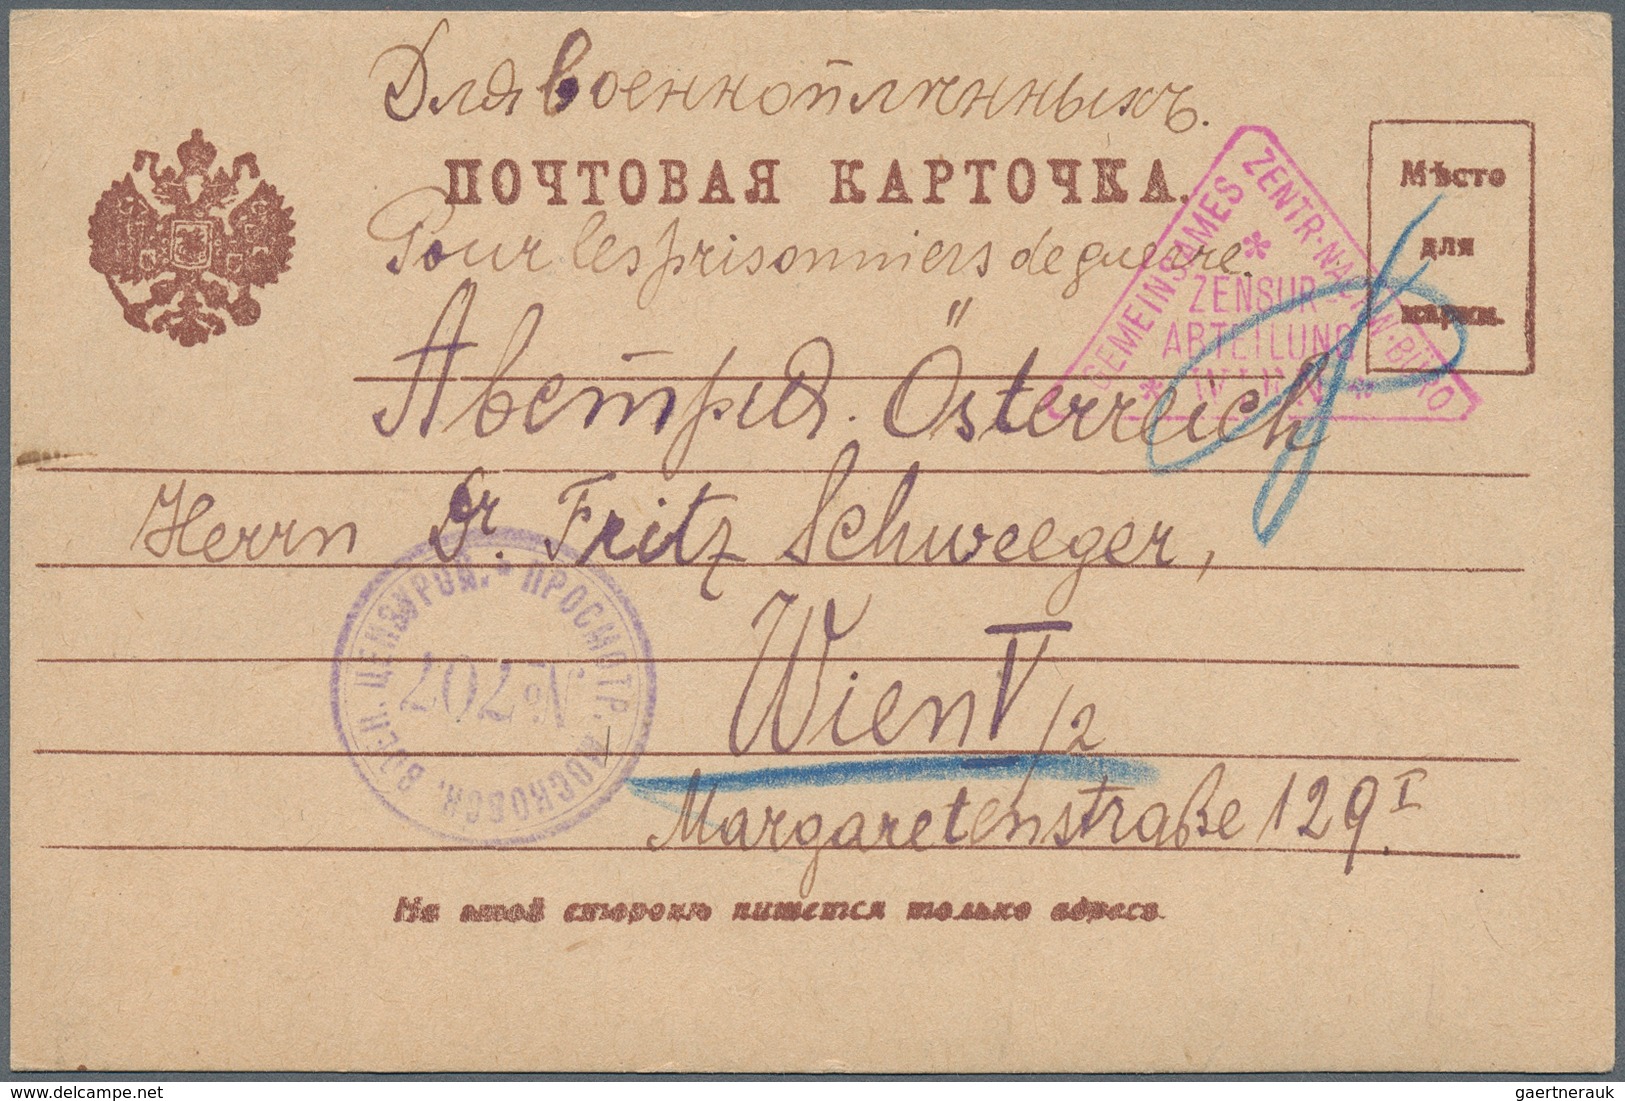 Для военноплѣнныхъ.
ПОЧТОВАЯ КАРТОЧКА.
Pour les prisonniers de guerre.
Мѣсто
для
марки.
GEMEINSAMES ZENTR-NACHW-BÜRO
ZENSUR
ABTEILUNG
WIEN
Австрія. Österreich
Herrn Dr. Fritz Schweeger,
Wien V/2
Margaretenstraße 129 I.
ПРОСМОТР. МОСКОВСК. ВОЕН. ЦЕНЗУРОЙ.
№ 202
На этой сторонѣ пишется только адресъ
delcampe.net
gaertnerauk